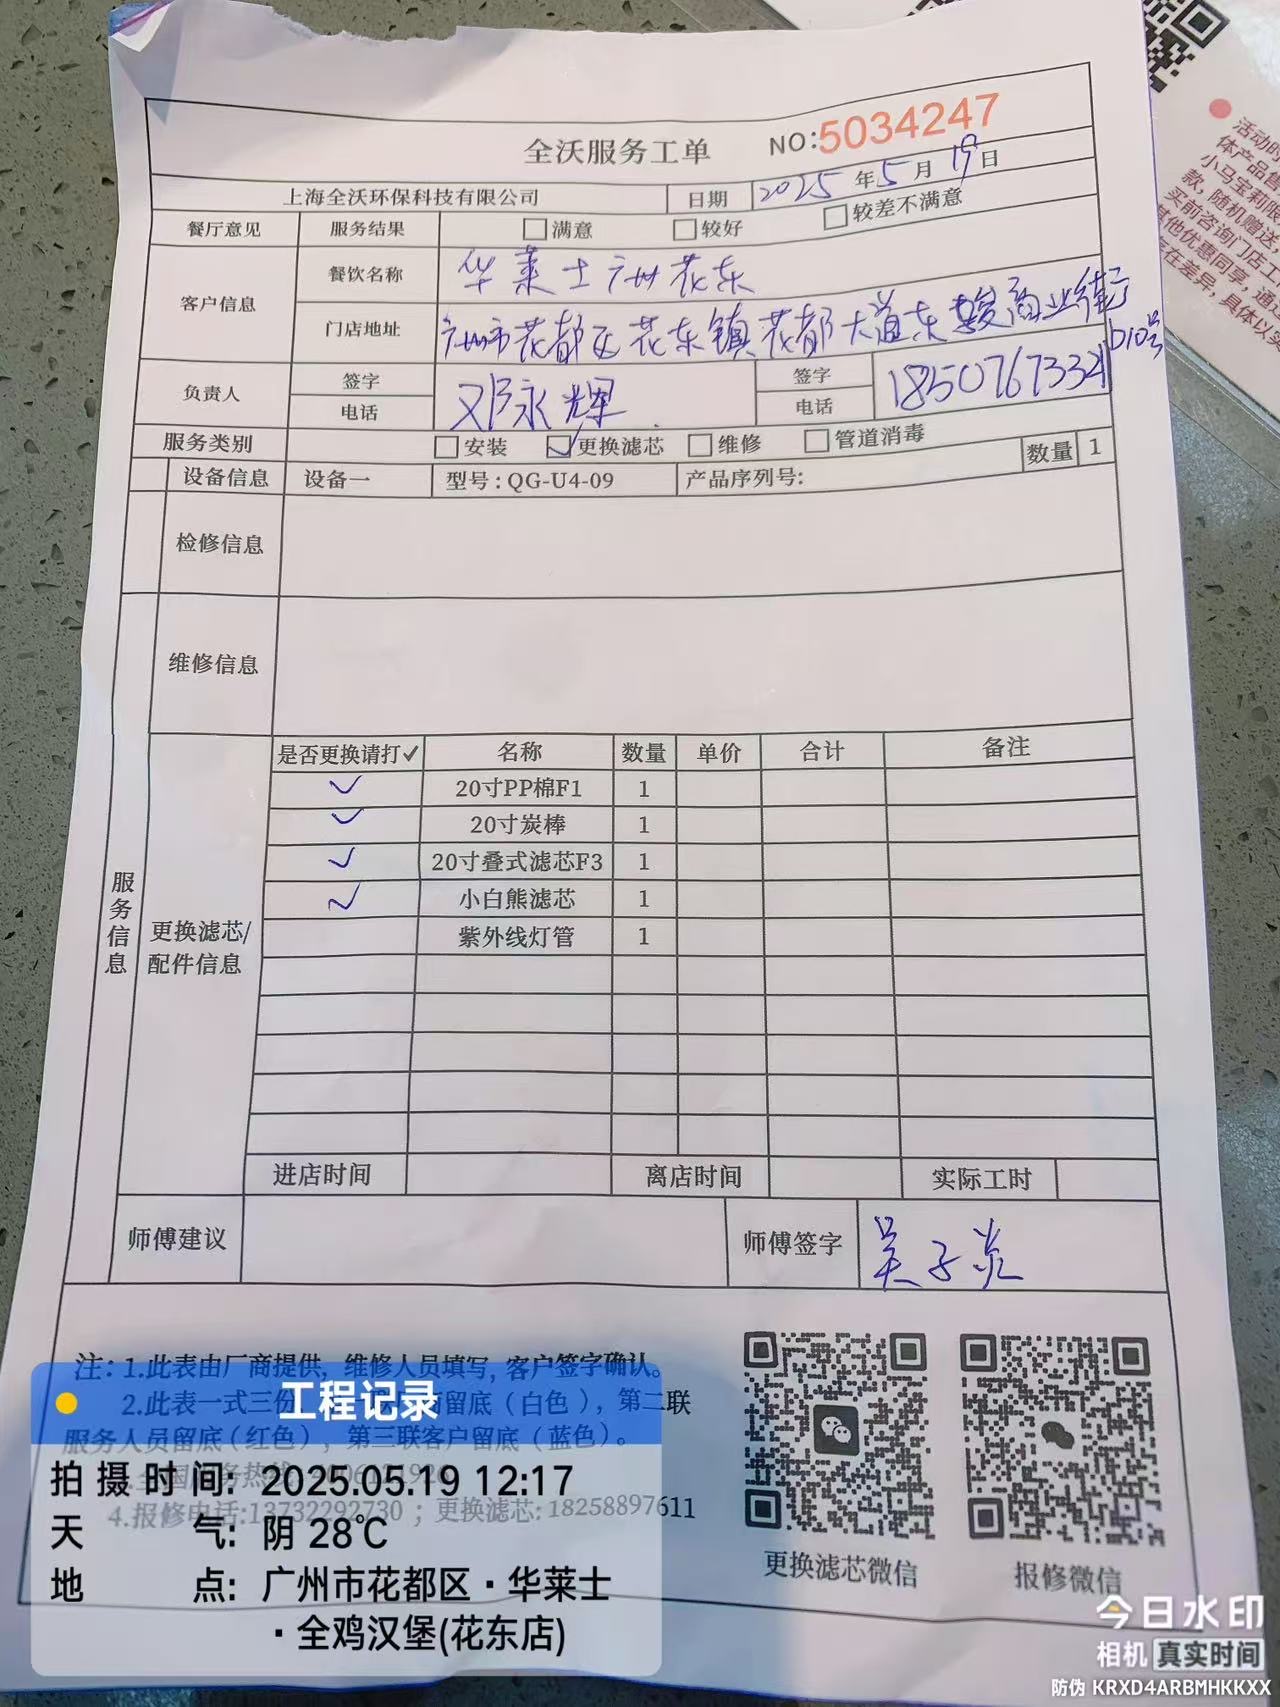 全沃服务工单
NO:5034247
上海全沃环保科技有限公司 日期 2025年5月19日
餐厅意见 服务结果 满意 较好 较差不满意
客户信息 餐饮名称 华莱士广州花东
门店地址 广州市花都区花东镇花都大道东 商业街
D10号
负责人 签字 邓永辉 签字 18507673321
电话 电话
服务类别 安装 更换滤芯 维修 管道消毒
设备信息 设备一 型号:QG-U4-09 产品序列号: 数量 1
检修信息
维修信息
服务信息
更换滤芯/
配件信息
是否更换请打✓ 名称 数量 单价 合计 备注
✓ 20寸PP棉F1 1
✓ 20寸炭棒 1
✓ 20寸叠式滤芯F3 1
✓ 小白熊滤芯 1
紫外线灯管 1
进店时间 离店时间 实际工时
师傅建议 师傅签字 吴子炎
注: 1.此表由厂商提供, 维修人员填写, 客户签字确认。
2.此表一式三份 商留底(白色), 第二联
服务人员留底(红色), 第三联客户留底(蓝色)。
4.报修电话:13732292730 ; 更换滤芯: 18258897611
更换滤芯微信 报修微信
工程记录
拍摄时间: 2025.05.19 12:17
天气: 阴 28℃
地点: 广州市花都区·华莱士
·全鸡汉堡(花东店)
今日水印
相机 真实时间
防伪 KRXD4ARBMHKKXX
活动时
体产品售
小马宝莉限
款, 随机赠送,
买前咨询门店工
其他优惠同享, 通
在差异, 具体以实